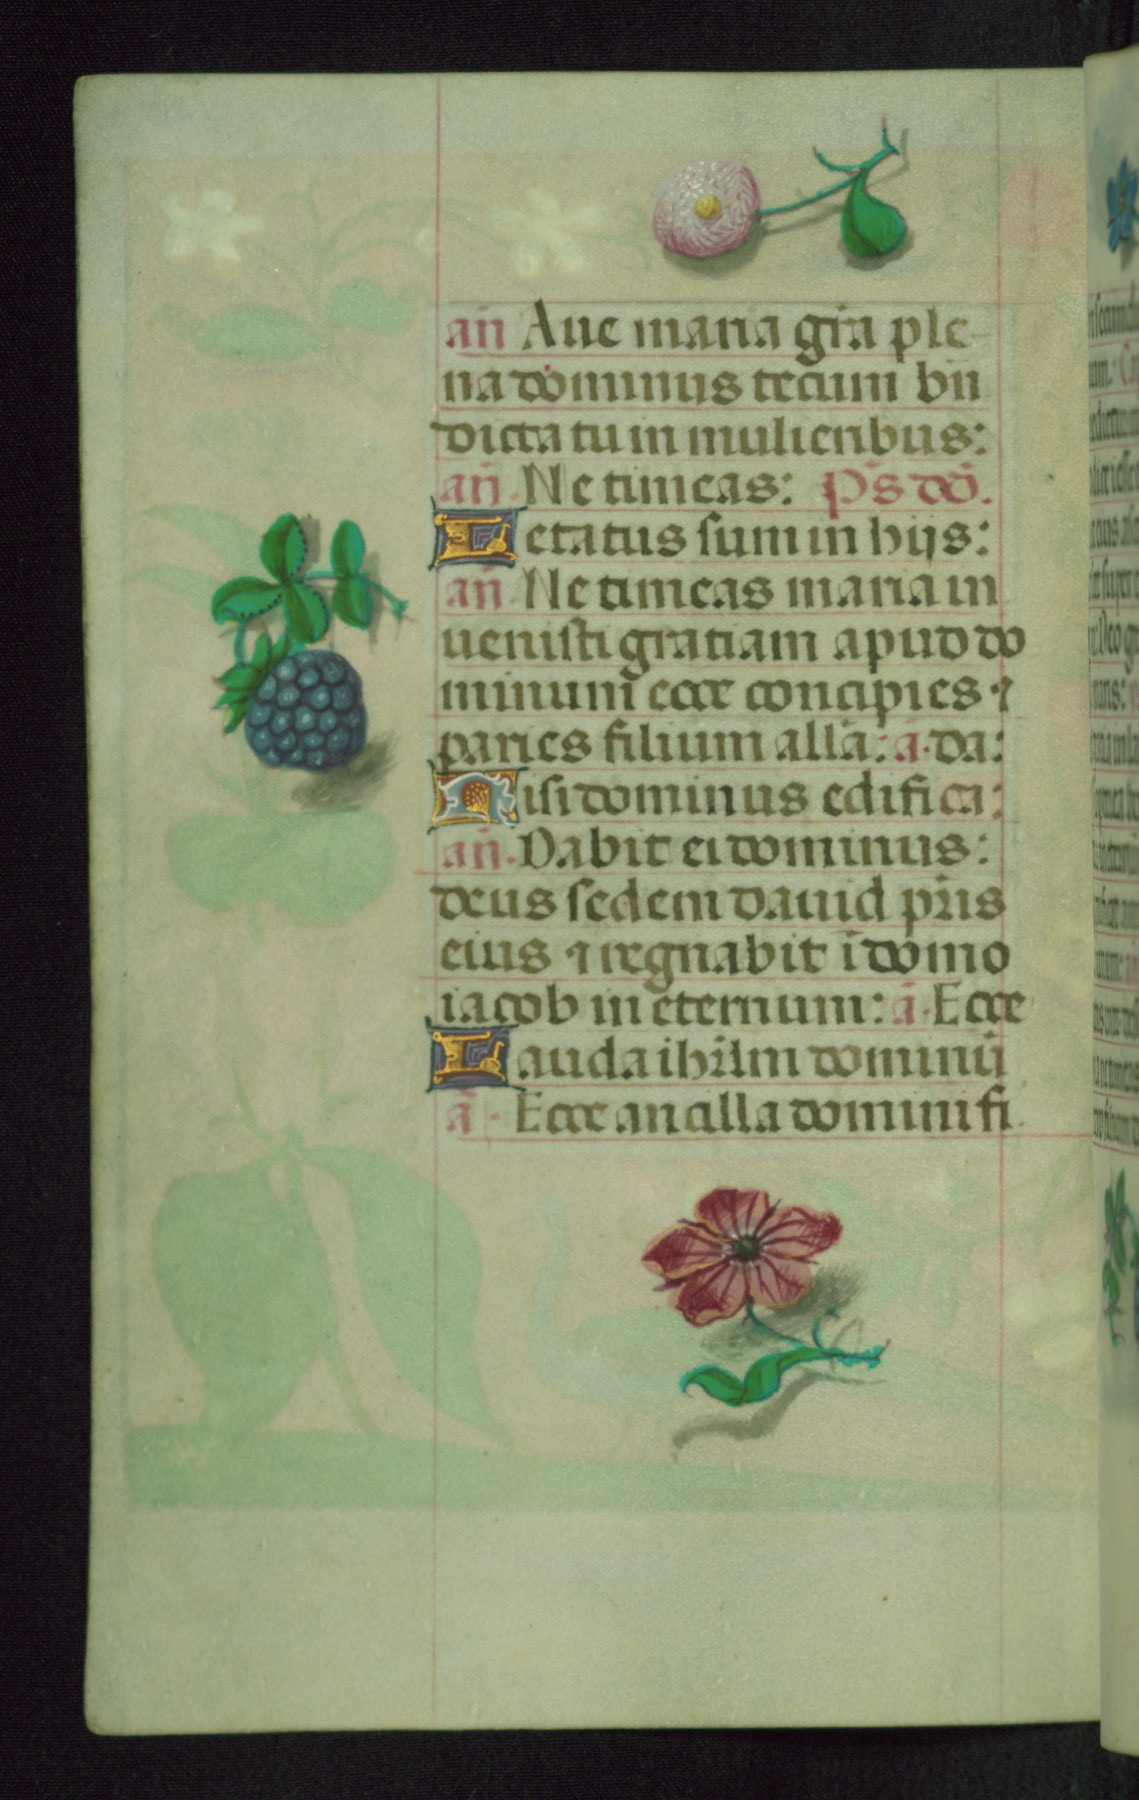 an̄ Aue maria gr̄a ple-
na dominus tecum bn̄
dicta tu in mulieribus:
an̄. Ne timeas: Ps̄ dō.
Letatus sum in hijs:
an̄. Ne timeas maria in
uenisti gratiam apud do
minum ecce concipies ⁊
paries filium alla̅: a. da:
Nisi dominus edifica:
an̄. Dabit ei dominus:
deus sedem dauid pr̄is
eius ⁊ regnabit ī domo
iacob in eternum: ā. Ecce
Lauda ihrl̄m dominū
ā. Ecce ancilla domini fi